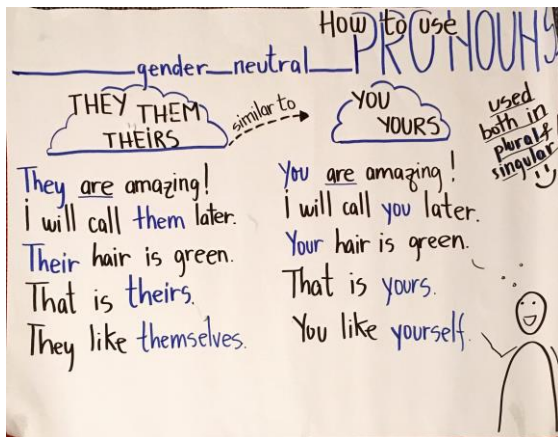 How to use
gender neutral PRONOUNS
THEY THEM
THEIRS
similar to
YOU
YOURS
used
both in
plural &
singular
They are amazing!
i will call them later.
Their hair is green.
That is theirs.
They like themselves.
You are amazing!
i will call you later.
Your hair is green.
That is yours.
You like yourself.